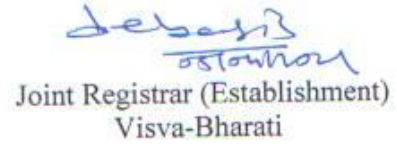 debasis
Joint Registrar (Establishment)
Visva-Bharati